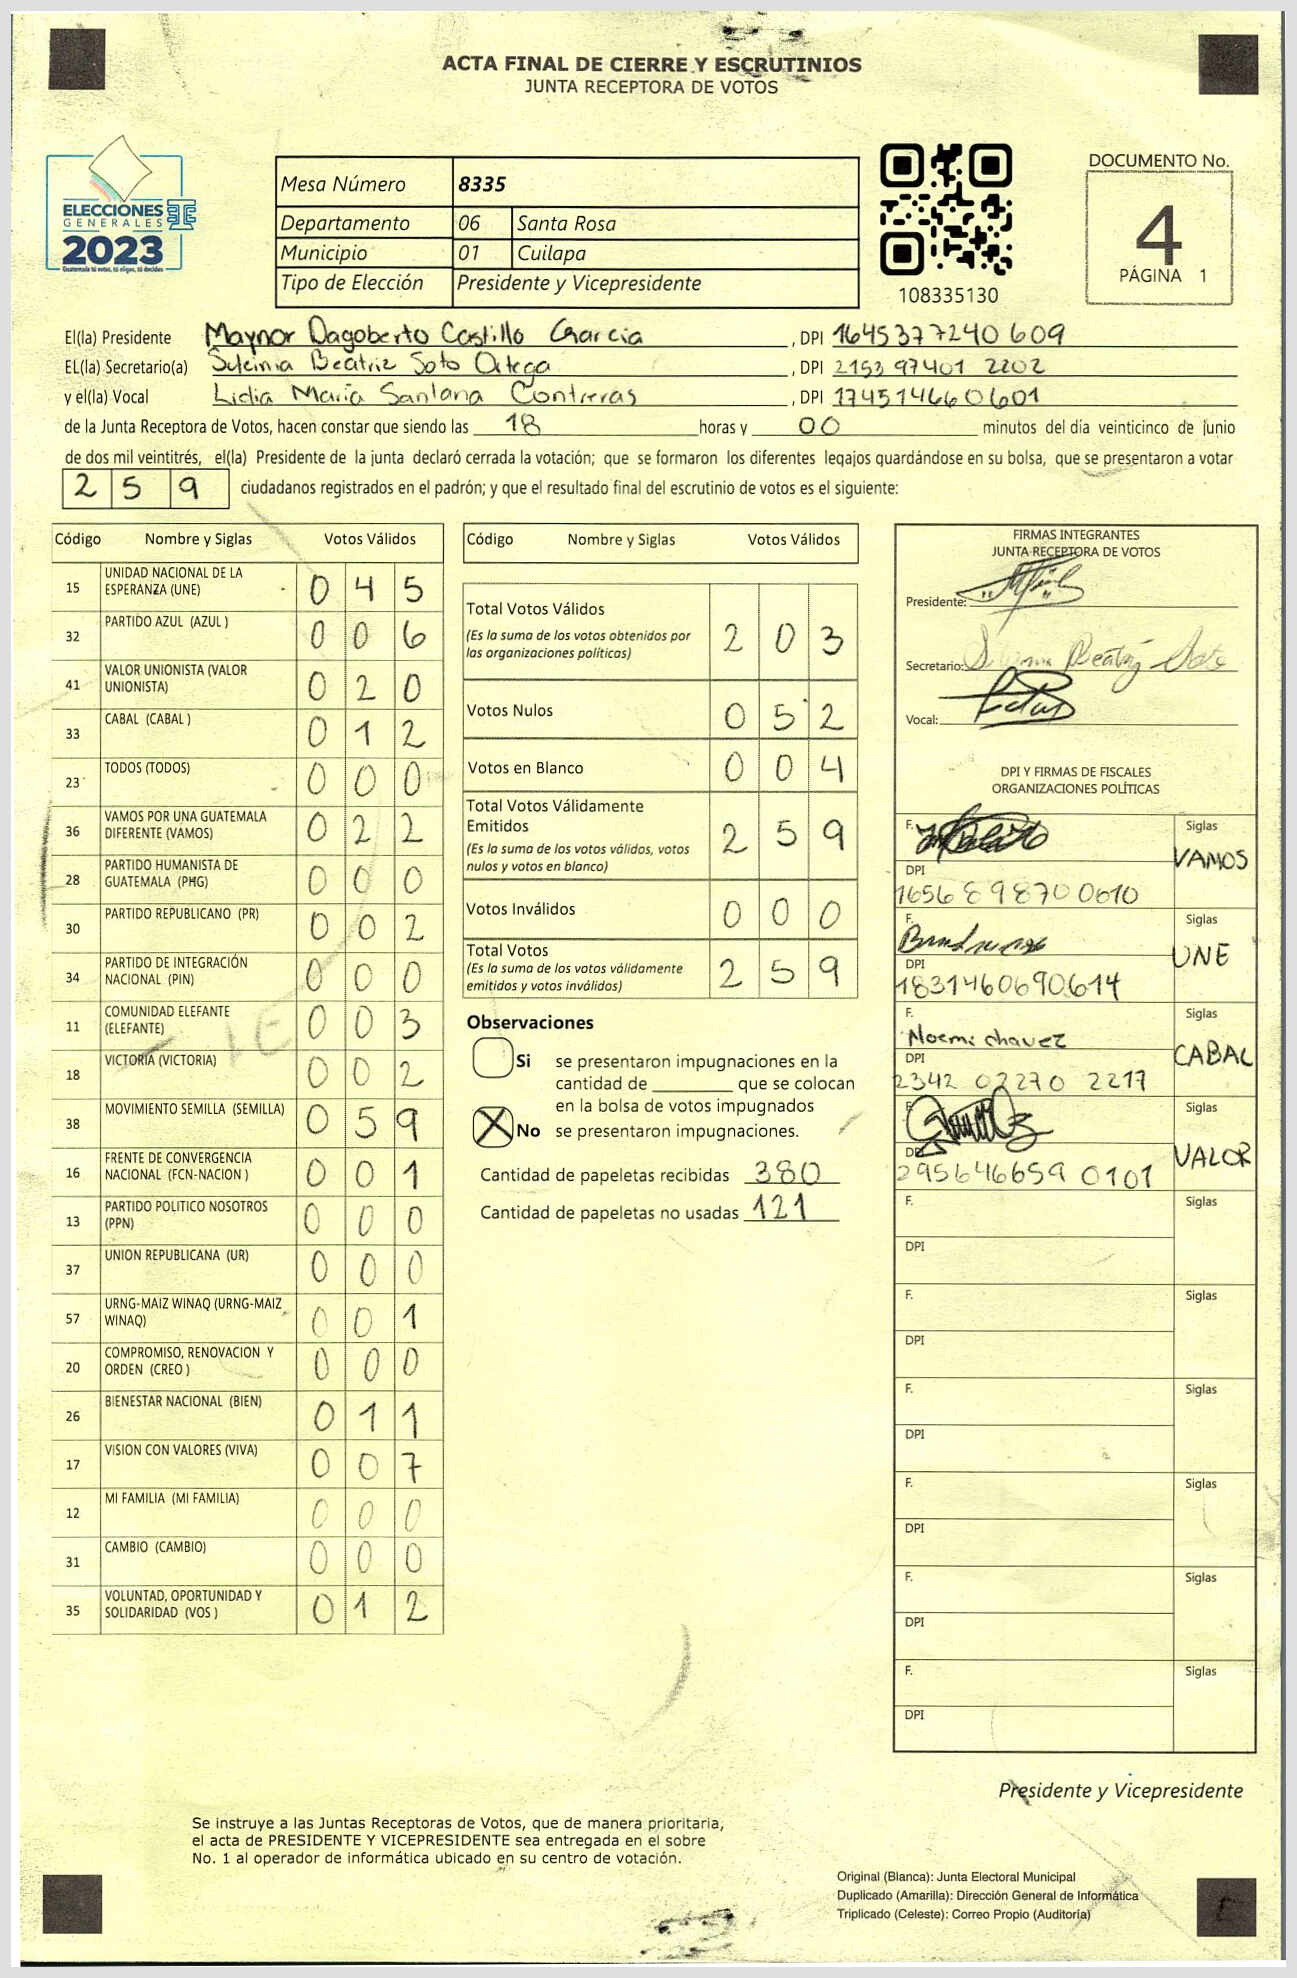 ACTA FINAL DE CIERRE Y ESCRUTINIOS
JUNTA RECEPTORA DE VOTOS
ELECCIONES
GENERALES
2023
Guatemala tú votas, tú eliges, tú decides
Mesa Número 8335
Departamento 06 Santa Rosa
Municipio 01 Cuilapa
Tipo de Elección Presidente y Vicepresidente
108335130
DOCUMENTO No.
4
PÁGINA 1
El(la) Presidente Maynor Dagoberto Castillo Garcia , DPI 1645377240609
EL(la) Secretario(a) Beatriz Soto Ortega , DPI 2153 97401 2202
y el(la) Vocal Lidia María Santana Contreras , DPI 1745146600601
de la Junta Receptora de Votos, hacen constar que siendo las 18 horas y 00 minutos del día veinticinco de junio
de dos mil veintitrés, el(la) Presidente de la junta declaró cerrada la votación; que se formaron los diferentes legajos guardándose en su bolsa, que se presentaron a votar
2 5 9 ciudadanos registrados en el padrón; y que el resultado final del escrutinio de votos es el siguiente:
Código Nombre y Siglas Votos Válidos
15 UNIDAD NACIONAL DE LA ESPERANZA (UNE) 0 4 5
32 PARTIDO AZUL (AZUL ) 0 0 6
41 VALOR UNIONISTA (VALOR UNIONISTA) 0 2 0
33 CABAL (CABAL ) 0 1 2
23 TODOS (TODOS) 0 0 0
36 VAMOS POR UNA GUATEMALA DIFERENTE (VAMOS) 0 2 2
28 PARTIDO HUMANISTA DE GUATEMALA (PHG) 0 0 0
30 PARTIDO REPUBLICANO (PR) 0 0 2
34 PARTIDO DE INTEGRACIÓN NACIONAL (PIN) 0 0 0
11 COMUNIDAD ELEFANTE (ELEFANTE) 0 0 3
18 VICTORIA (VICTORIA) 0 0 2
38 MOVIMIENTO SEMILLA (SEMILLA) 0 5 9
16 FRENTE DE CONVERGENCIA NACIONAL (FCN-NACION ) 0 0 1
13 PARTIDO POLITICO NOSOTROS (PPN) 0 0 0
37 UNION REPUBLICANA (UR) 0 0 0
57 URNG-MAIZ WINAQ (URNG-MAIZ WINAQ) 0 0 1
20 COMPROMISO, RENOVACION Y ORDEN (CREO ) 0 0 0
26 BIENESTAR NACIONAL (BIEN) 0 1 1
17 VISION CON VALORES (VIVA) 0 0 7
12 MI FAMILIA (MI FAMILIA) 0 0 0
31 CAMBIO (CAMBIO) 0 0 0
35 VOLUNTAD, OPORTUNIDAD Y SOLIDARIDAD (VOS ) 0 1 2
Código Nombre y Siglas Votos Válidos
Total Votos Válidos 2 0 3
(Es la suma de los votos obtenidos por
las organizaciones políticas)
Votos Nulos 0 5 2
Votos en Blanco 0 0 4
Total Votos Válidamente
Emitidos 2 5 9
(Es la suma de los votos válidos, votos
nulos y votos en blanco)
Votos Inválidos 0 0 0
Total Votos 2 5 9
(Es la suma de los votos válidamente
emitidos y votos inválidos)
Observaciones
Si se presentaron impugnaciones en la
cantidad de ________ que se colocan
en la bolsa de votos impugnados
X No se presentaron impugnaciones.
Cantidad de papeletas recibidas 380
Cantidad de papeletas no usadas 121
FIRMAS INTEGRANTES
JUNTA RECEPTORA DE VOTOS
Presidente:
Secretario: Beatriz Soto
Vocal:
DPI Y FIRMAS DE FISCALES
ORGANIZACIONES POLÍTICAS
F. Siglas
VAMOS
DPI
1656898700610
F. Siglas
UNE
DPI
1831460690614
F. Siglas
Noemi chavez CABAL
DPI
2342 02270 2217
F. Siglas
VALOR
DPI
295646659 0101
F. Siglas
DPI
F. Siglas
DPI
F. Siglas
DPI
F. Siglas
DPI
F. Siglas
DPI
F. Siglas
DPI
Presidente y Vicepresidente
Se instruye a las Juntas Receptoras de Votos, que de manera prioritaria,
el acta de PRESIDENTE Y VICEPRESIDENTE sea entregada en el sobre
No. 1 al operador de informática ubicado en su centro de votación.
Original (Blanca): Junta Electoral Municipal
Duplicado (Amarilla): Dirección General de Informática
Triplicado (Celeste): Correo Propio (Auditoría)